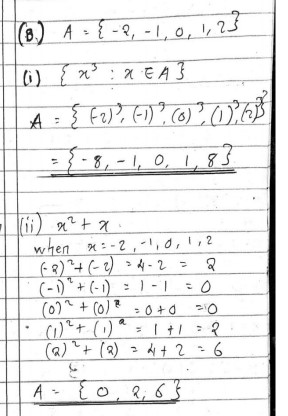 (B.) A = {-2, -1, 0, 1, 2}
(i) { x³ : x ∈ A}
A = { (-2)³, (-1)³, (0)³, (1)³, (2)³}
= {-8, -1, 0, 1, 8}
(ii) x² + x
when x = -2, -1, 0, 1, 2
(-2)² + (-2) = 4 - 2 = 2
(-1)² + (-1) = 1 - 1 = 0
(0)² + (0) = 0 + 0 = 0
(1)² + (1) = 1 + 1 = 2
(2)² + (2) = 4 + 2 = 6
A = {0, 2, 6}